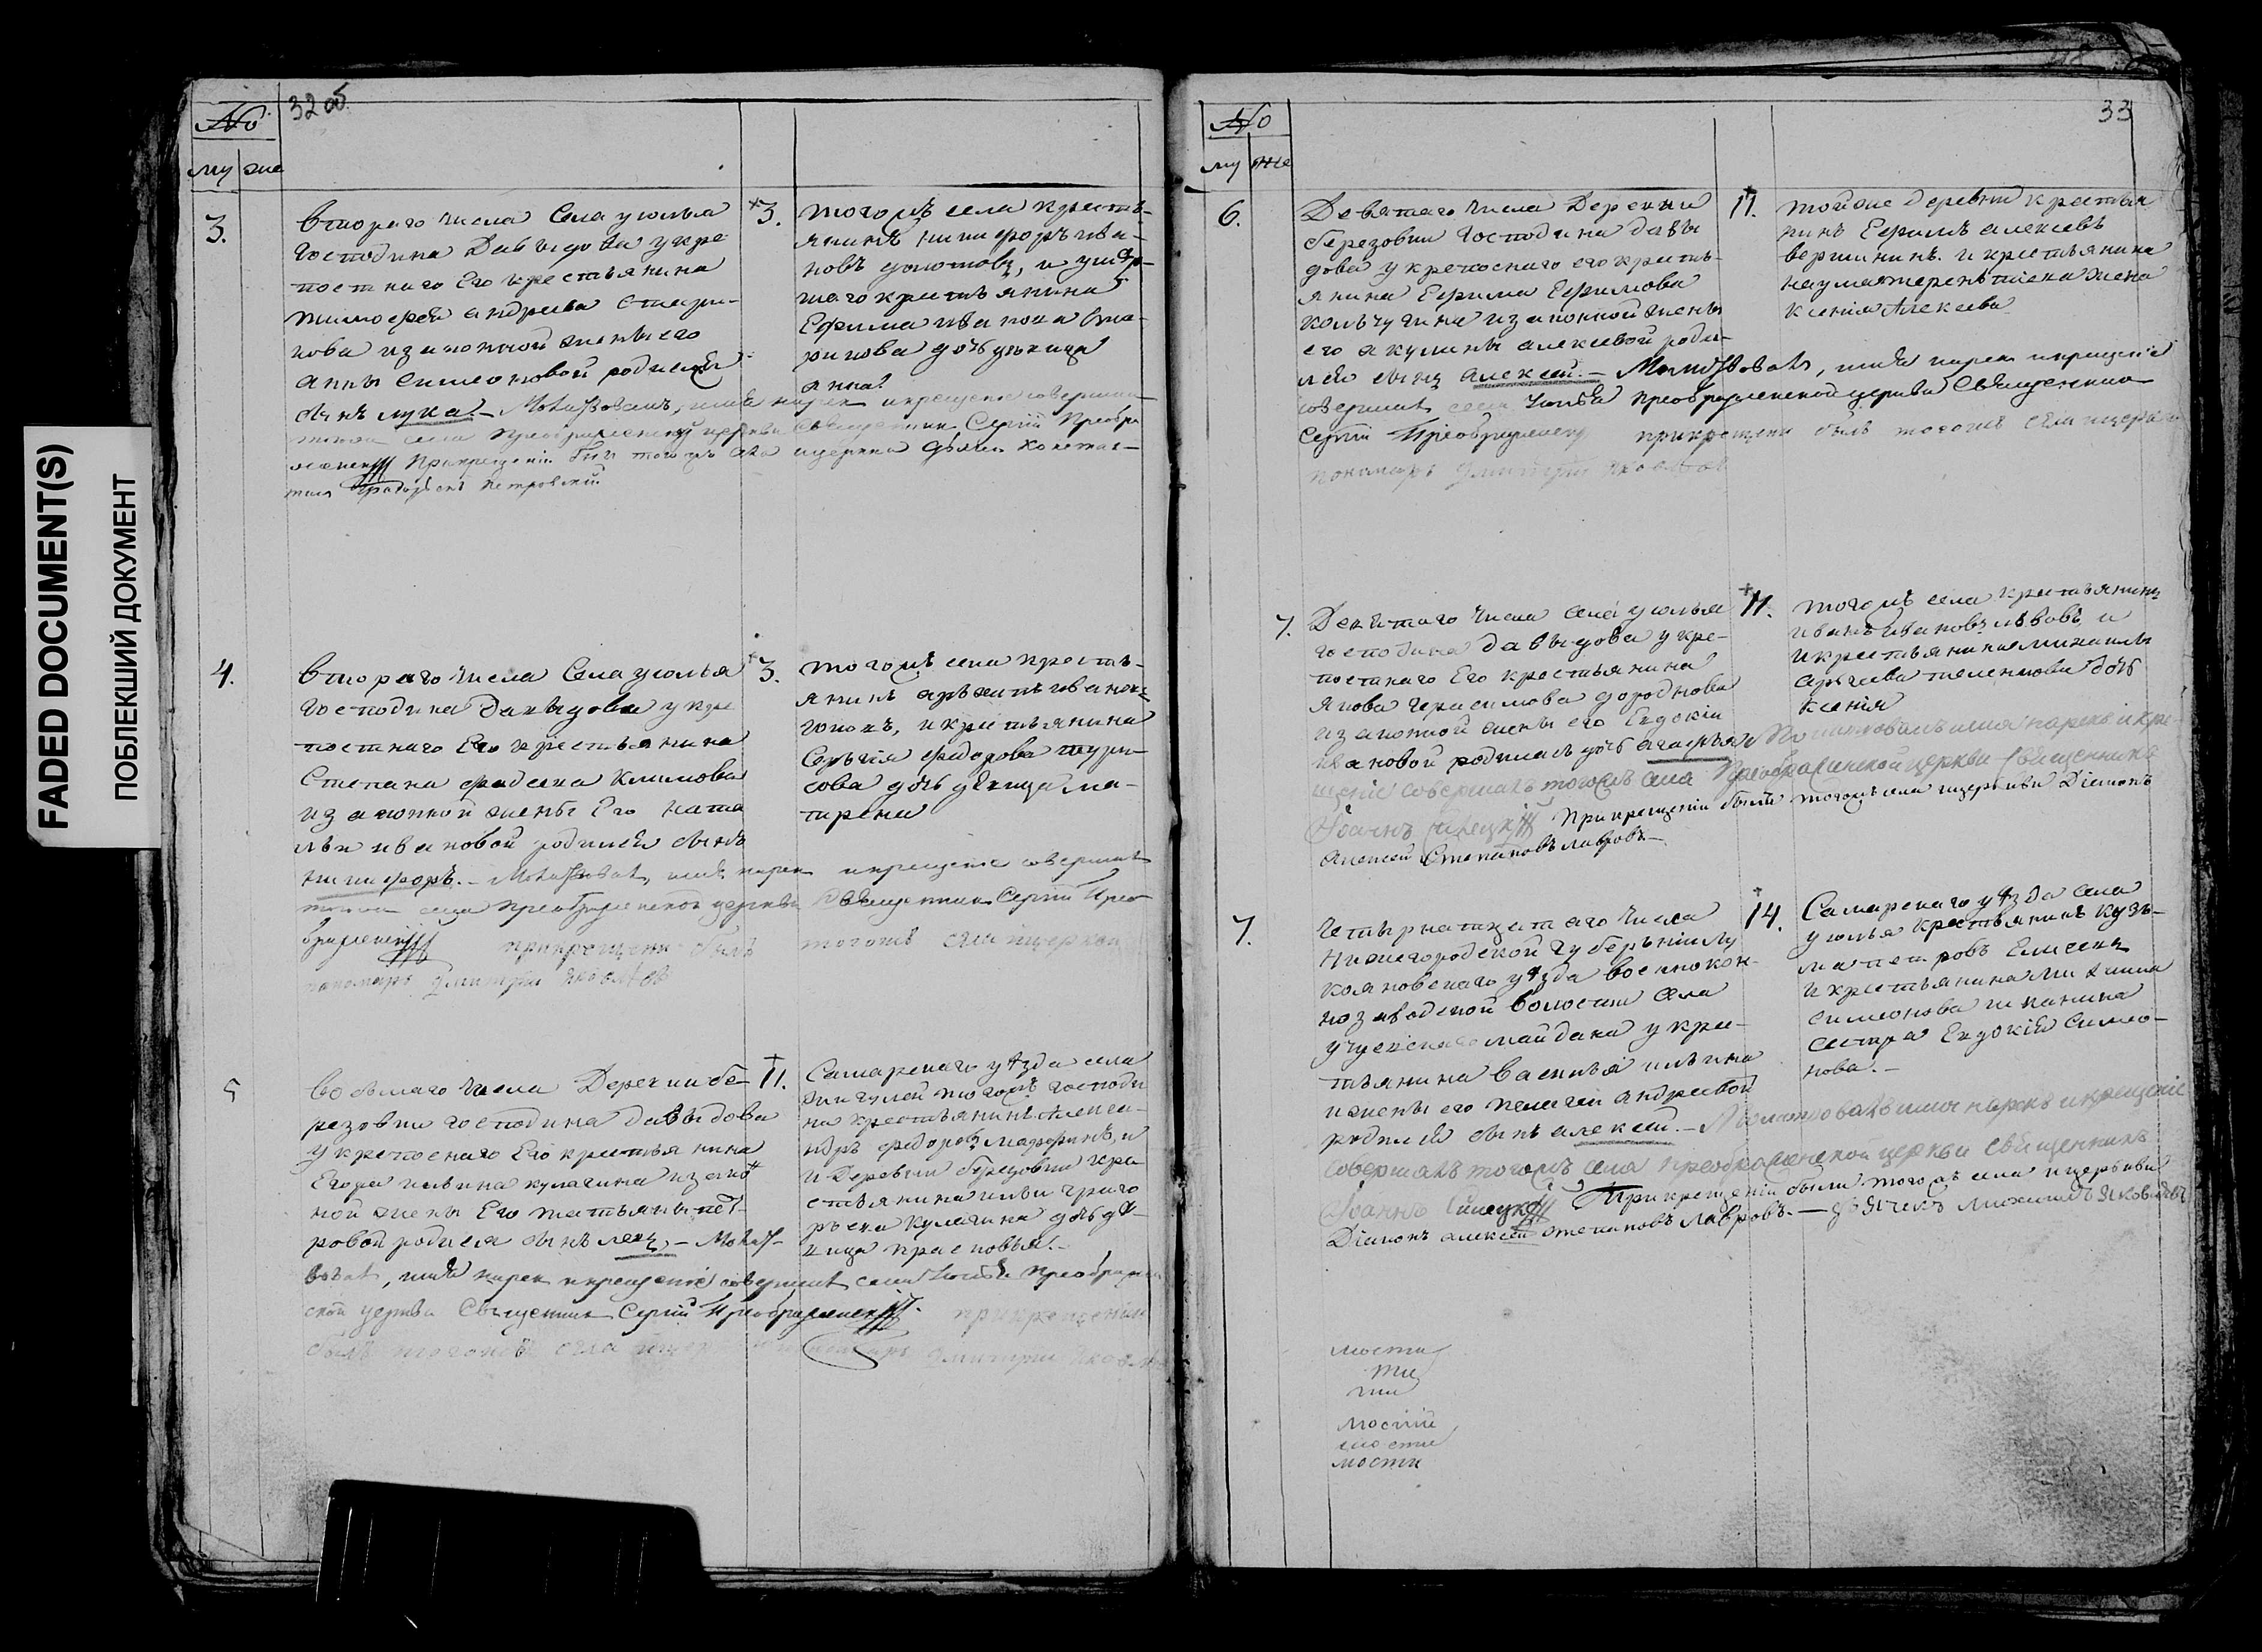 FADED DOCUMENT(S)
ПОБЛЕКШИЙ ДОКУМЕНТ
№
32 об.
му же
3.
втораго числа Села усолья
Господина Давыдова укре
постнаго Его крестьянина
тимофея андреева
нова иззаконной жены его
анны Симеоновой родился
сынъ лука. – Молитвовалъ, имя нарек и крещение совершил
того села преображенской церкви Священник Сергий Преобра
женский При крещении был того жъ села и церкви
Петровский
3.
тогожъ села кресть-
янинъ никифоръ ива-
новъ долотовъ, и умер-
шаго крестьянина
Ефима иванова
ринова дочь девица
анна.
4.
втораго числа Села усолья
Господина давыдова укре
постнаго Его крестьянина
Степана фадеева Климова
иззаконной жены Его ната
льи ивановой родился сынъ
никифоръ. – Молитвовал, имя нарек и крещение совершил
того села преображенской церкви Священник Сергий Прео
браженский при крещении былъ тогожъ села и церкви
пономарь дмитрий Яковлев
3.
тогожъ села кресть-
янинъ архипъ иванов
и крестьянина
Сергия федорова
сова дочь девица ма-
трена
5
восьмаго числа Деревни бе-
резовки господина давыдова
укрепоснаго Его крестьянина
Егора ильина кулагина иззако
нной жены Его татьяны пет-
ровой родился сынъ левъ. – Молит-
вовал, имя нарек и крещение совершил села Усолья преображен
ской церкви Священник Сергий Преображенский. при крещении
былъ тогожъ села и церкви пономарь дмитрий Яковлев
11.
Самарскаго уезда села
жигулей тогожъ господи
на крестьянинъ алекса-
ндръ федоровъ марфинъ, и
и Деревни березовки кре
стьянина ильи григо
рьева кулагина дочь де-
вица прасковья. –
№
33
му же
6.
Девятаго числа Деревни
березовки Господина давы
дова укрепоснаго его кресть-
янина Ефима Ефимова
кольчугина иззаконной жены
его акулины алексеевой роди-
лся сынъ алексей. – Молитвовал, имя нарек и крещение
совершил села Усолья преображенской церкви Священник
Сергий Преображенский при крещении былъ тогожъ села и церкви
пономарь дмитрий Яковлев
11.
тойже деревни крестья
нинъ Ефимъ алексеевъ
вершининъ. и крестьянина
наума терентьева жена
ксения Алексеева
7.
Десятаго числа села усолья
господина давыдова укре-
постнаго Его крестьянина
якова герасимова дороднова
иззаконной жены его Евдокии
ивановой родилась дочь агафья Молитвовалъ имя нарекъ и кре-
щение совершалъ тогожъ села Преображенской церкви Священникъ
Иоаннъ При крещении былъ тогожъ села и церкви Диаконъ
Алексей Степановъ лавровъ. –
11.
тогожъ села крестьянинъ
иванъ ивановъ львовъ, и
и крестьянина михаила
дочь
ксения
7.
Четырнатцатаго числа
Нижегородской губернии Лу
кояновскаго уезда военнокон-
нозаводской волости села
майдана укре-
тьянина василья ильина
и жены его пелагеи андреевой
родился сынъ алексей. – Молитвовалъ имя нарекъ и крещение
совершалъ тогожъ села преображенской церкви священникъ
Иоаннъ При крещении были тогожъ села и церкви
Диаконъ алексей степановъ лавровъ. – дьячекъ михаилъ Яковлевъ
14.
Самарскаго уезда села
усолья крестьянинъ кузь-
ма петровъ Елисеевъ
и крестьянина
симеонова шканина
сестра Евдокия Симео-
нова. –
мости
ти
ти
мостии
мости
мости